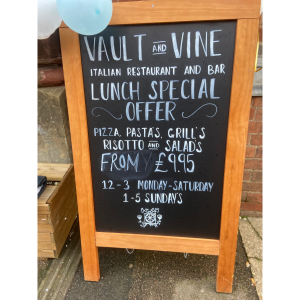 VAULT AND VINE
ITALIAN RESTAURANT AND BAR
LUNCH SPECIAL
OFFER
PIZZA, PASTA'S, GRILL'S
RISOTTO AND SALADS
FROM £9.95
12-3 MONDAY-SATURDAY
1-5 SUNDAYS